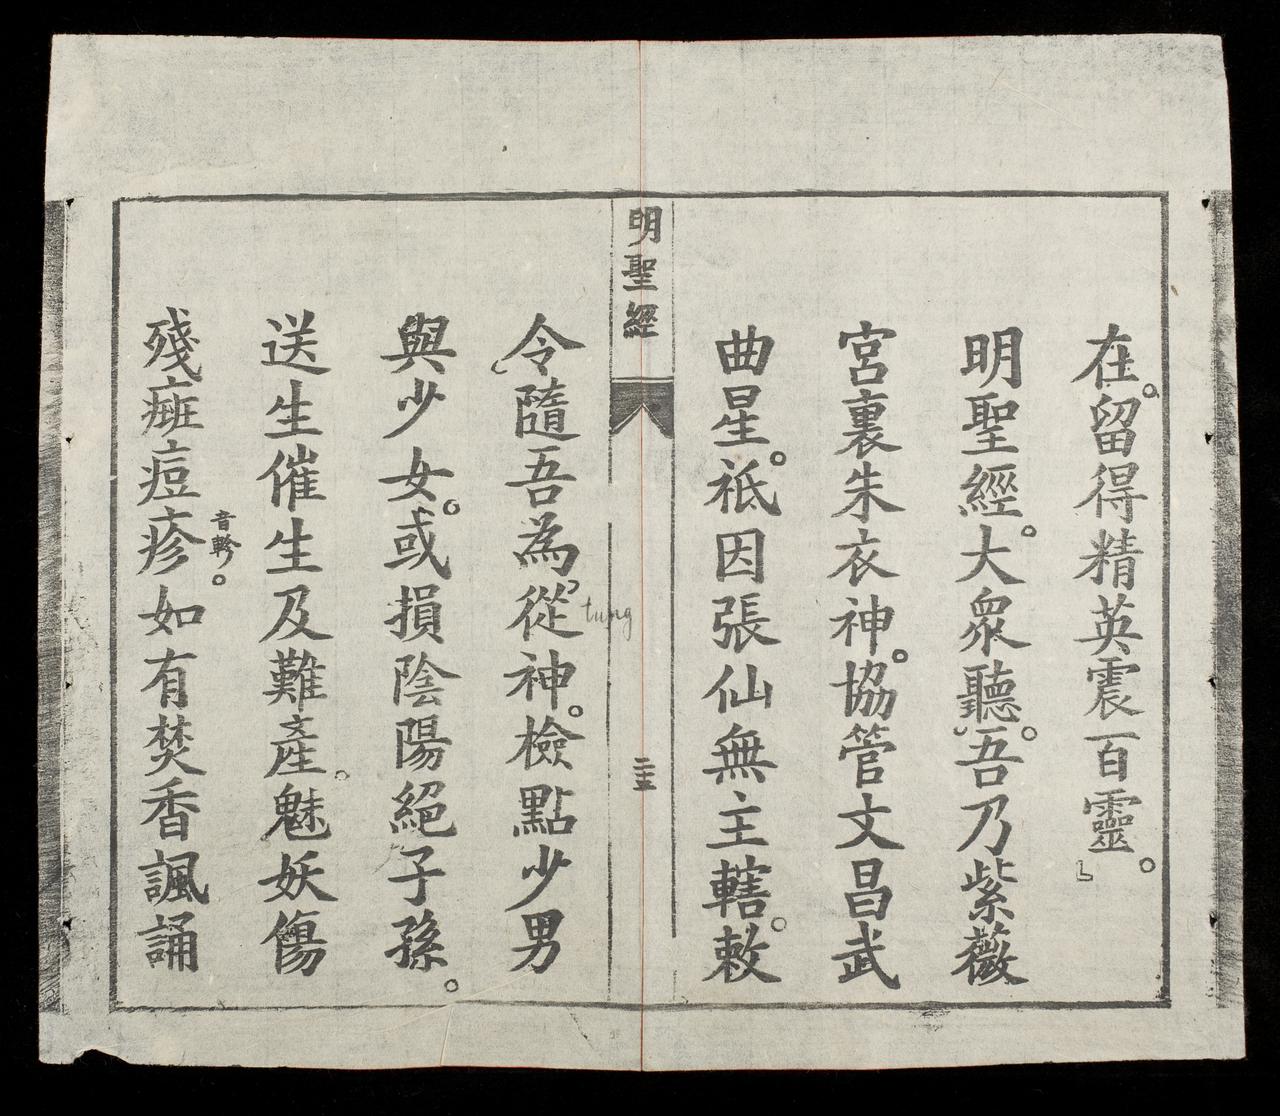 在。留得精英震百靈。
明聖經。大衆聽。吾乃紫薇
宮裏朱衣神。協管文昌武
曲星。祗因張仙無主轄。敕
明聖經
二十五
令隨吾為從神。檢點少男
tung
與少女。或損陰陽絕子孫。
送生催生及難產。魅妖傷
殘瘢痘疹音軫。如有焚香諷誦